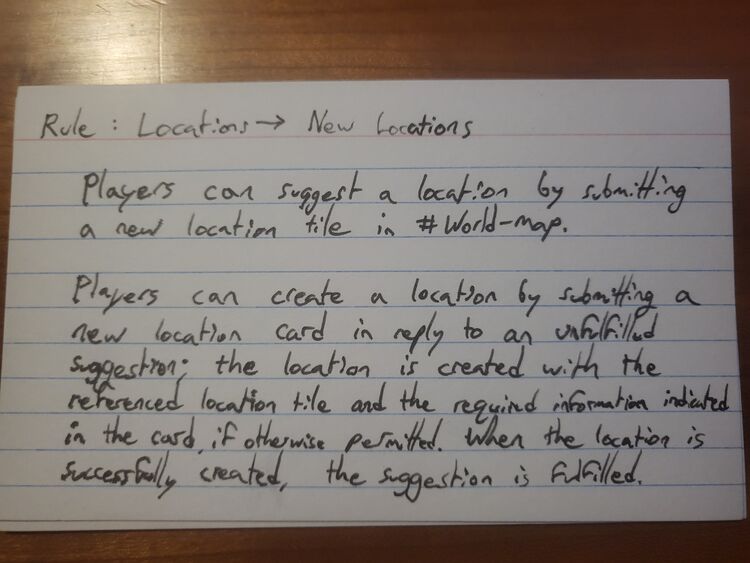 Rule: Locations → New Locations
Players can suggest a location by submitting
a new location tile in #World-map.
Players can create a location by submitting a
new location card in reply to an unfulfilled
suggestion; the location is created with the
referenced location tile and the required information indicated
in the card, if otherwise permitted. When the location is
successfully created, the suggestion is fulfilled.